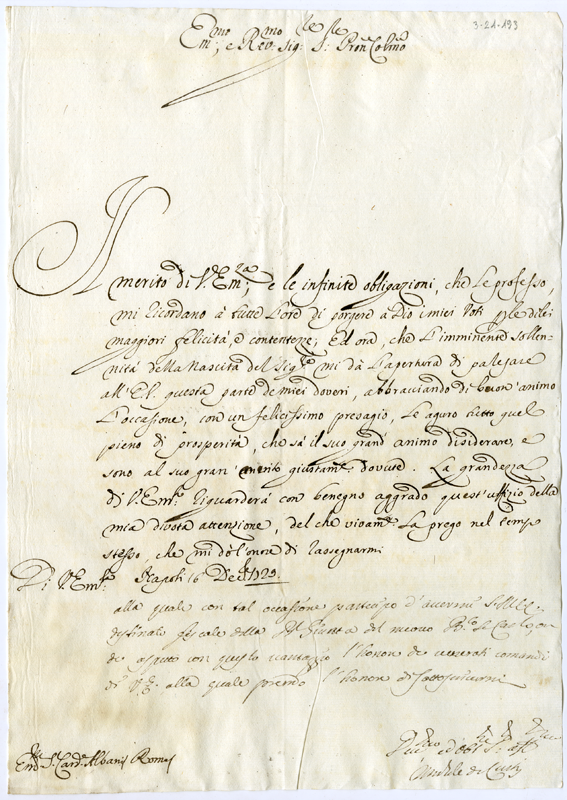 3-21-193
Em.mo e Rev.mo Sig.re S.re Pron Colmo
Il merito di V. Em.za e le infinite obligazioni, che Le professo,
mi ricordano à tutte l'ore di porgere à Dio i miei Voti p le di lei
maggiori felicità, e contentezze; Ed ora, che l'imminente sollen-
nità della Nascita del Sig.re mi dà l'apertura di palesare
all'E.V. questa parte de miei doveri, abbracciando di buon'animo
l'occasione, con un felicissimo presagio, Le aguro tutto quel
pieno di prosperità, che sà il suo grand'animo disiderare, e
sono al suo gran merito giustam.te dovute. La grandezza
di V. Em.za riguarderà con benegno aggrado quest'uffizio della
mia divota attenzione, del che vivam.te La prego nel temp
stesso, che mi dò l'onore di rassegnarmi
Di V. Em.za Napoli 16 Dec.re 1729
alla quale con tal occasione partecipo d'avermi S.M.
destinato fiscale della del nuovo
de con questo vantaggio l'honor de venerati comandi
di V.E. alla quale prendo l'honor di sottoscrivermi
Em.o S. Card.e Albani Roma